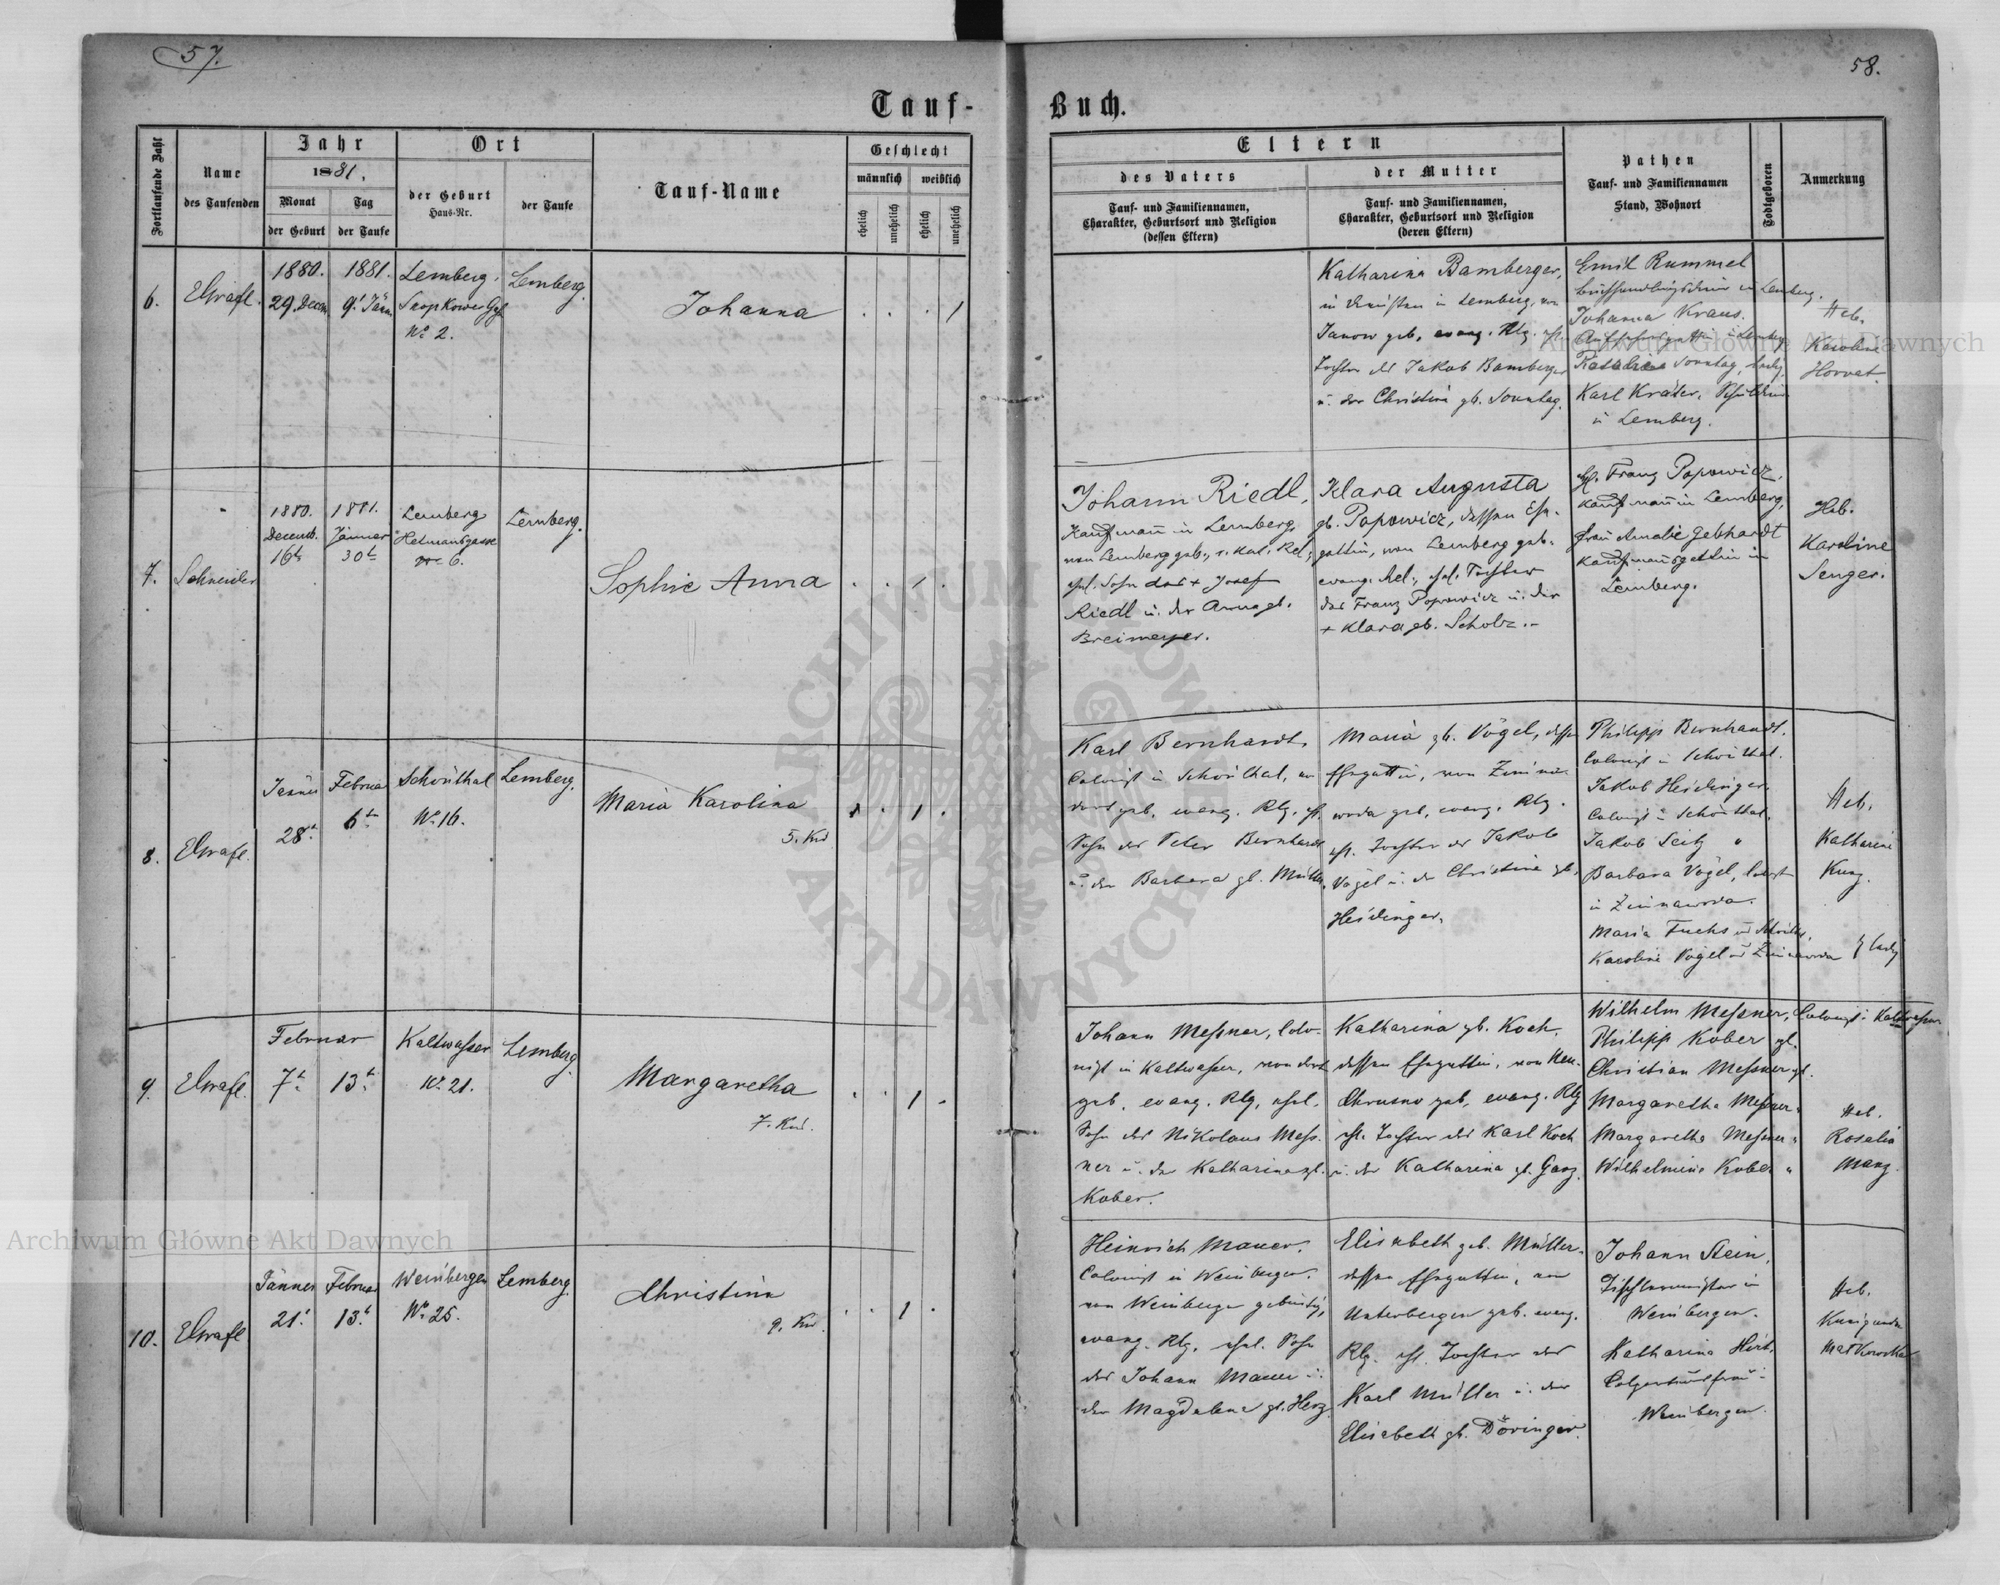 57.
58.
Tauf-
Buch.
Fortlaufende Zahl
Name
des Taufenden
Jahr
1881.
Monat
der Geburt
Tag
der Taufe
Ort
der Geburt
Haus-Nr.
der Taufe
Tauf-Name
Geschlecht
männlich
weiblich
ehelich
unehelich
ehelich
unehelich
Eltern
des Vaters
Tauf- und Familiennamen,
Charakter, Geburtsort und Religion
(dessen Eltern)
der Mutter
Tauf- und Familiennamen,
Charakter, Geburtsort und Religion
(deren Eltern)
Pathen
Tauf- und Familiennamen
Stand, Wohnort
Todtgeboren
Anmerkung
6.
1880.
29. Decem.
1881.
9t Jänn.
Lemberg,
No 2.
Lemberg.
Johanna
1
Katharina Bamberger,
in Lemberg, von
Janow geb. evang. Rlg. ehl.
Tochter des Jakob Bamberger
u. der Christina gb. Sonntag.
Emil Rummel
in Lemberg.
Johanna Kraus.
Sonntag, ledig.
Karl Kräter,
in Lemberg.
Heb.
Karoline
Horvat.
7.
Schneider
1880.
Decemb.
16t
1881.
Jänner
30t
Lemberg
Hetmansgasse
No 6.
Lemberg.
Sophie Anna
1
Johann Riedl,
Kaufmann in Lemberg,
von Lemberg geb., r. kat. Rel.,
ehl. Sohn des + Josef
Riedl u. der Anna gb.
Breimeyer.
Klara Augusta
gb. Popowicz, dessen Ehe-
gattin, von Lemberg geb.
evang. Rel., ehl. Tochter
des Franz Popowicz u. der
+ Klara gb. Scholz.-
H. Franz Popowicz,
Kaufmann in Lemberg,
Frau Amalie Gebhardt
Kaufmannsgattin in
Lemberg.
Heb.
Karoline
Senger.
8.
Jänner
28t
Februar
6tn
Schönthal
No 16.
Lemberg.
Maria Karolina
5. Kind
1
Karl Bernhardt,
Colonist in Schönthal, von
dort geb. evang. Rlg. ehl.
Sohn des Peter Bernhardt
u. der Barbara gb. Müller.
Maria gb. Vögel, dessen
Ehegattin, von Zimna-
woda geb. evang. Rlg.
ehl. Tochter des Jakob
Vögel u. der Christina gb.
Heidinger.
Philipp Bernhardt,
Colonist in Schönthal.
Jakob Heidinger,
Colonist in Schönthal.
Jakob Seitz "
Barbara Vögel,
in Zimnawoda.
Maria Fuchs
Karoline Vögel
Zimnawoda } ledig
Heb.
Katharina
Kunz.
9.
Februar
7t
13t
Kaltwasser
No 21.
Lemberg.
Margaretha
7. Kind.
1
Johann Meßner, Colo-
nist in Kaltwasser, von dort
geb. evang. Rlg. ehel.
Sohn des Nikolaus Meß-
ner u. der Katharina gb.
Kober.
Katharina gb. Koch,
dessen Ehegattin, von Neu-
Chrusno geb. evang. Rlg
ehl. Tochter des Karl Koch
u. der Katharina gb. Ganz.
Wilhelm Meßner, Colonist in Kaltwasser
Philipp Kober gl.
Christian Meßner gl.
Margaretha Meßner "
Margaretha Meßner "
Wilhelmina Kober "
Heb.
Rosalia
Manz
10.
Jänner
21t
Februar
13t
Weinbergen
No 25.
Lemberg.
Christina
9. Kind.
1
Heinrich Mauer,
Colonist in Weinbergen,
von Weinbergen gebürtig,
evang. Rlg. ehel. Sohn
des Johann Mauer u.
der Magdalena gb. Herz.
Elisabeth geb. Müller,
dessen Ehegattin, von
Unterbergen geb. evang.
Rlg. ehl. Tochter des
Karl Müller u. der
Elisabeth gb. Döringer.
Johann Stein,
Tischlermeister in
Weinbergen.
Katharina Hirt,
Weinbergen.
Heb.
Kunigunda
Archiwum Główne Akt Dawnych
Archiwum Główne Akt Dawnych
ARCHIWUM GŁÓWNE AKT DAWNYCH